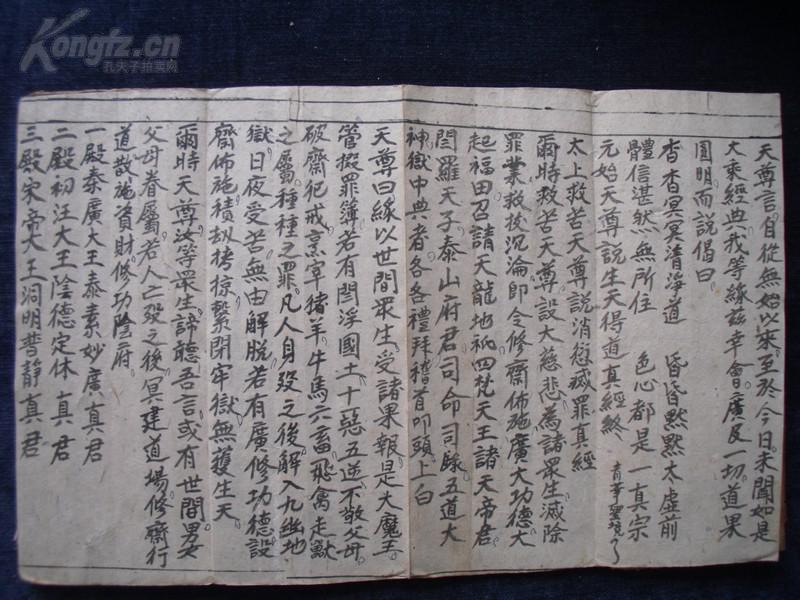 Kongfz.cn
孔夫子拍卖网
天尊言自從無始以來至於今日未聞如是
大乘經典我等緣茲幸會廣及一切道果
圓明而說偈曰
杳杳冥冥清淨道 昏昏默默太虛前
體信湛然無所住 色心都是一真宗
元始天尊說生天得道真經終
太上救苦天尊說消愆滅罪真經
爾時救苦天尊設大慈悲為諸眾生滅除
罪業救拔沉淪即令修齋佈施廣大功德大
起福田召請天龍地祇四梵天王諸天帝君
閻羅天子泰山府君司命司錄五道大
神獄中典者各各禮拜稽首叩頭上白
天尊曰緣以世間眾生受諸果報是大魔王
管掇罪簿若有閻浮國土十惡五逆不敬父母
破齋犯戒烹宰猪羊牛馬六畜飛禽走獸
之屬種種之罪凡人身殁之後解入九幽地
獄日夜受苦無由解脫若有廣修功德設
齋佈施積劫拷掠繫閉牢獄無獲生天
爾時天尊汝等眾生諦聽吾言或有世間男女
父母眷屬若人亡殁之後冥建道場修齋行
道散施資財修功陰府
一殿秦廣大王泰素妙廣真君
二殿初江大王陰德定休真君
三殿宋帝大王洞明普靜真君